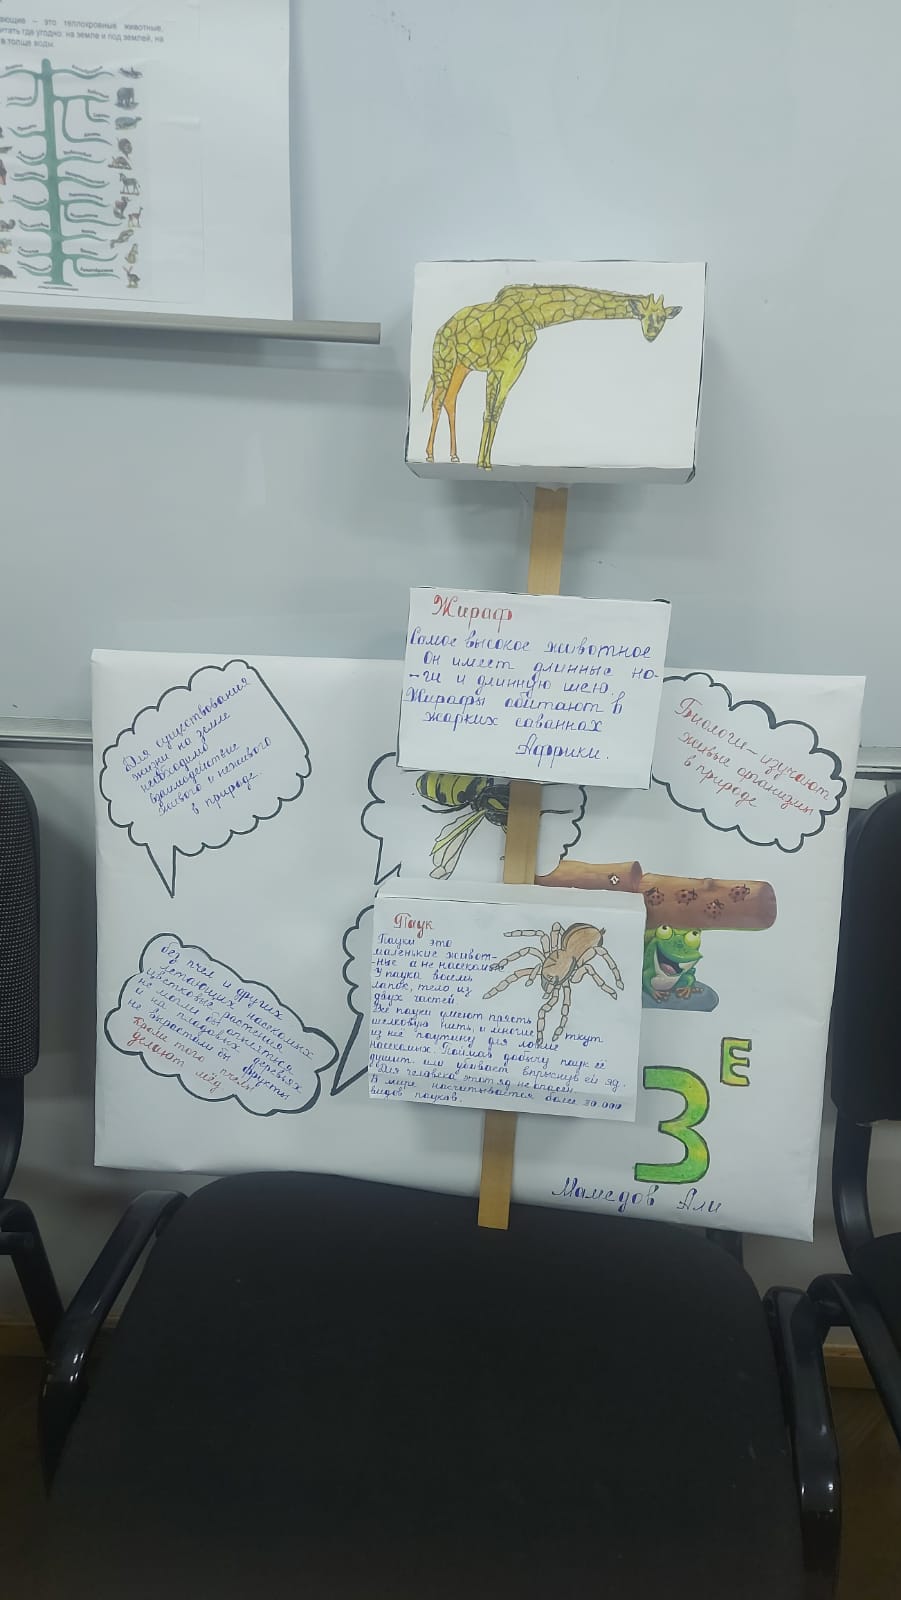 ающие – это теплокровные животные,
итать где угодно: на земле и под землей, на
в толще воды.
Жираф
Самое высокое животное
Он имеет длинные но-
-ги и длинную шею.
Жирафы обитают в
жарких саваннах
Африки.
Для существования
жизни на земле
необходимо
взаимодействие
живого и неживого
в природе.
Биологи – изучают
живые организмы
в природе
Паук
Пауки это
маленькие живот-
-ные а не насекомые
У паука восемь
лапок, тело из
двух частей
Все пауки умеют прясть
шелковую нить, и многие ткут
из неё паутину для ловли
насекомых. Поймав добычу паук её
душит. или убивает впрыснув ей яд.
Для человека этот яд не опасен.
В мире насчитывается более 30.000
видов пауков.
без пчел и других
летающих насекомых
цветковые растения
не могли бы опылятся
а на плодовых деревьях
не вырастали бы фрукты
Кроме того пчелы
делают мёд
3 Е
Мамедов Али